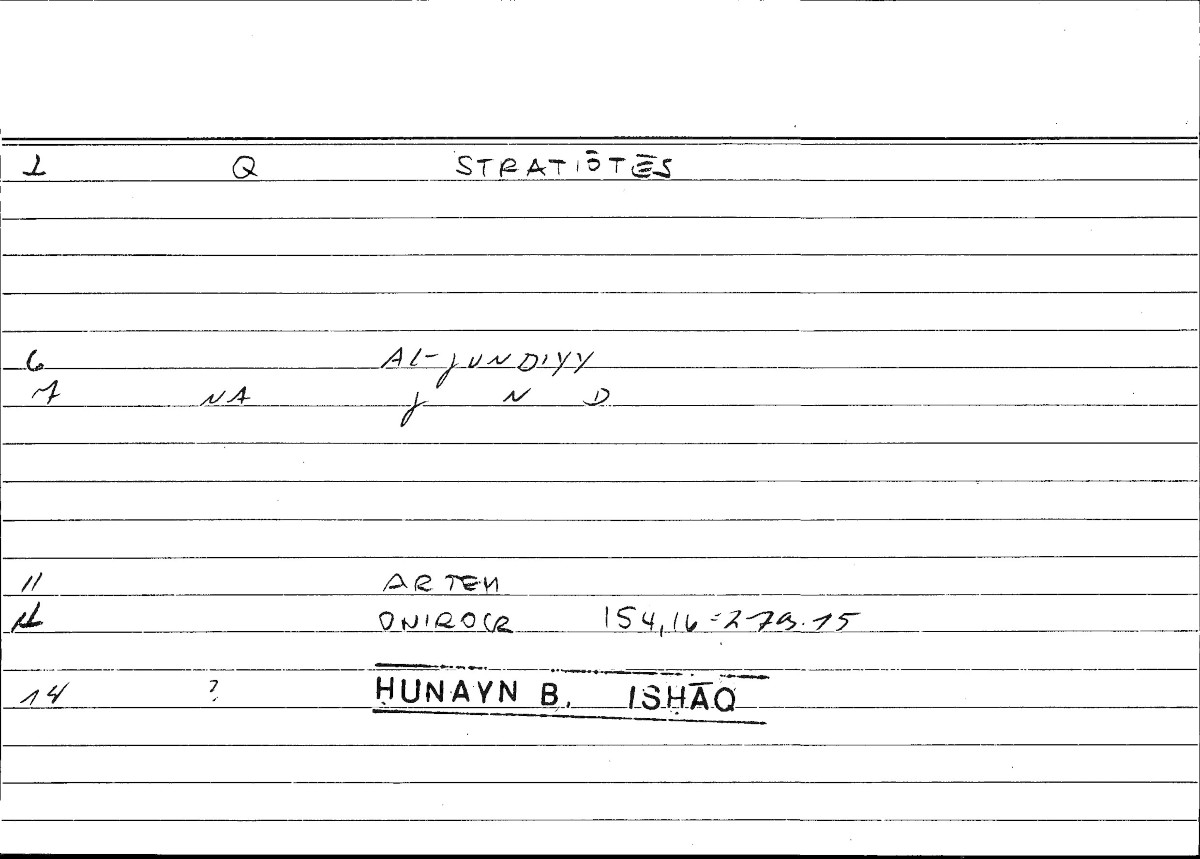 1 Q STRATIŌTĒS
6 AL-JUNDIYY
7 NA J N D
11 ARTEM
12 ONIROCR 154,16=279.15
14 ? ḤUNAYN B. ISḤĀQ